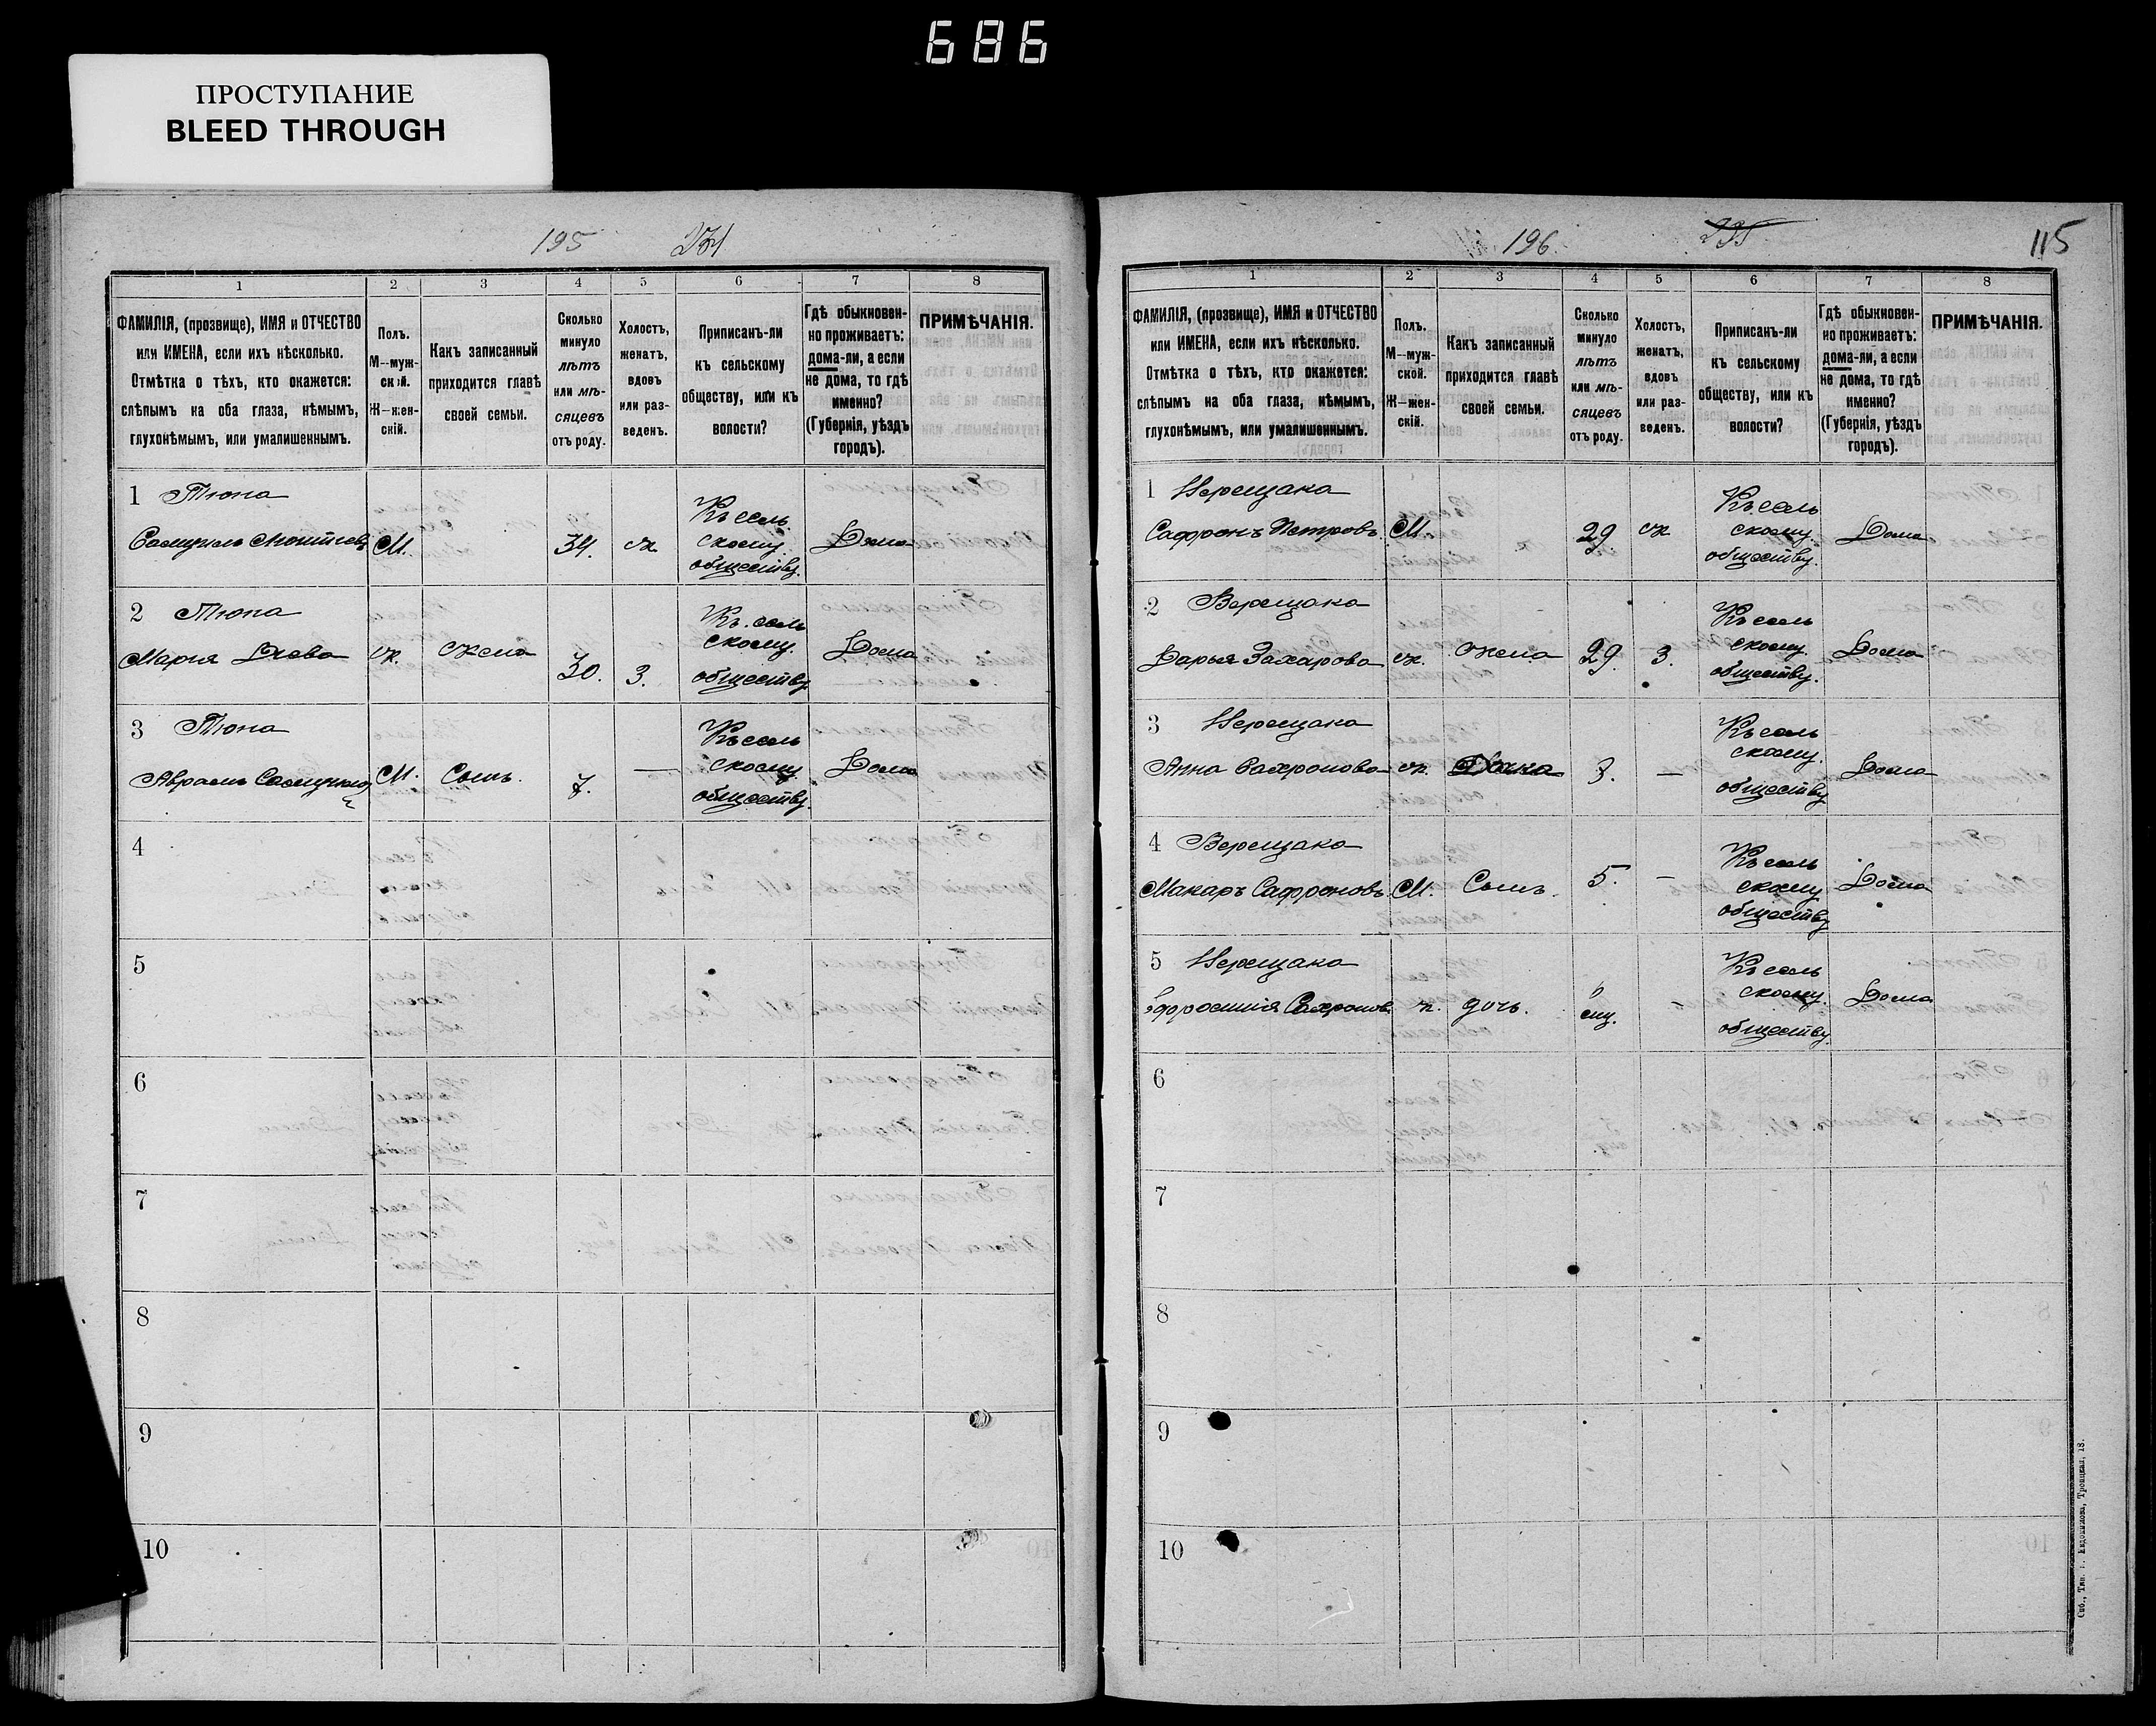 686
ПРОСТУПАНИЕ
BLEED THROUGH
195
1 2 3 4 5 6 7 8
ФАМИЛІЯ, (прозвище), ИМЯ и ОТЧЕСТВО
или ИМЕНА, если ихъ нѣсколько.
Отмѣтка о тѣхъ, кто окажется:
слѣпымъ на оба глаза, нѣмымъ,
глухонѣмымъ, или умалишеннымъ.
Полъ.
М--муж-
скій.
Ж--жен-
скій.
Какъ записанный
приходится главѣ
своей семьи.
Сколько
минуло
лѣтъ
или мѣ-
сяцевъ
отъ роду.
Холостъ,
женатъ,
вдовъ
или раз-
веденъ.
Приписанъ-ли
къ сельскому
обществу, или къ
волости?
Гдѣ обыкновен-
но проживаетъ:
дома-ли, а если
не дома, то гдѣ
именно?
(Губернія, уѣздъ
городъ).
ПРИМѢЧАНІЯ.
1 Тюпа
Самуилъ М. 34. ж
Къ сель.
скому.
обществу.
Дома
2 Тюпа
Марья ж. жена 30. З.
Къ. сель
скому.
обществу.
Дома
3 Тюпа
Аврамъ М. Сынъ. 7. —
Къ сель
скому.
обществу.
Дома
4
5
6
7
8
9
10
196.
115
1 2 3 4 5 6 7 8
ФАМИЛІЯ, (прозвище), ИМЯ и ОТЧЕСТВО
или ИМЕНА, если ихъ нѣсколько.
Отмѣтка о тѣхъ, кто окажется:
слѣпымъ на оба глаза, нѣмымъ,
глухонѣмымъ, или умалишеннымъ.
Полъ.
М--муж-
ской.
Ж--жен-
скій.
Какъ записанный
приходится главѣ
своей семьи.
Сколько
минуло
лѣтъ
или мѣ-
сяцевъ
отъ роду.
Холостъ,
женатъ,
вдовъ
или раз-
веденъ.
Приписанъ-ли
къ сельскому
обществу, или къ
волости?
Гдѣ обыкновен-
но проживаетъ:
дома-ли, а если
не дома, то гдѣ
именно?
(Губернія, уѣздъ
городъ).
ПРИМѢЧАНІЯ.
1 Верещака
Сафронъ Петровъ. М. 29 ж
Къ сель
скому.
обществу.
Дома
2 Верещака
Дарья Захарова ж. жена 29. З.
Къ сель
скому.
обществу.
Дома
3 Верещака
Анна Сафронова ж. 3. —
Къ сель
скому.
обществу
Дома
4 Верещака
Макаръ Сафроновъ М. Сынъ. 5. —
Къ сель
скому
обществу
Дома
5 Верещака
Ефросинія Сафронов. ж. дочь. 6 мц. -
Къ сель
скому.
обществу.
Дома
6
7
8
9
10